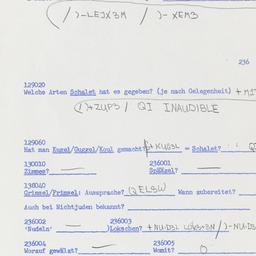 / )-LEJX3M / )- XEM3
236
129020
Welche Arten Schalet hat es gegeben? (je nach Gelegenheit)
1)+ZUP3 / QI INAUDIBLE
129060
Hat man Kugel/Guggel/Koul gemacht? + KUG3L = Schalet?
130010 236001
Zimmes? Spätzel?
138040
Grimsel/Frimsel: Aussprache? QELBW Wann zubereitet?
Auch bei Nichtjuden bekannt?
236002 236003
'Nudeln' )Lokschen? + NU-D3L LOKS-3N / )-NU-D3
236004 236005
Worauf gewälzt? — Womit? O